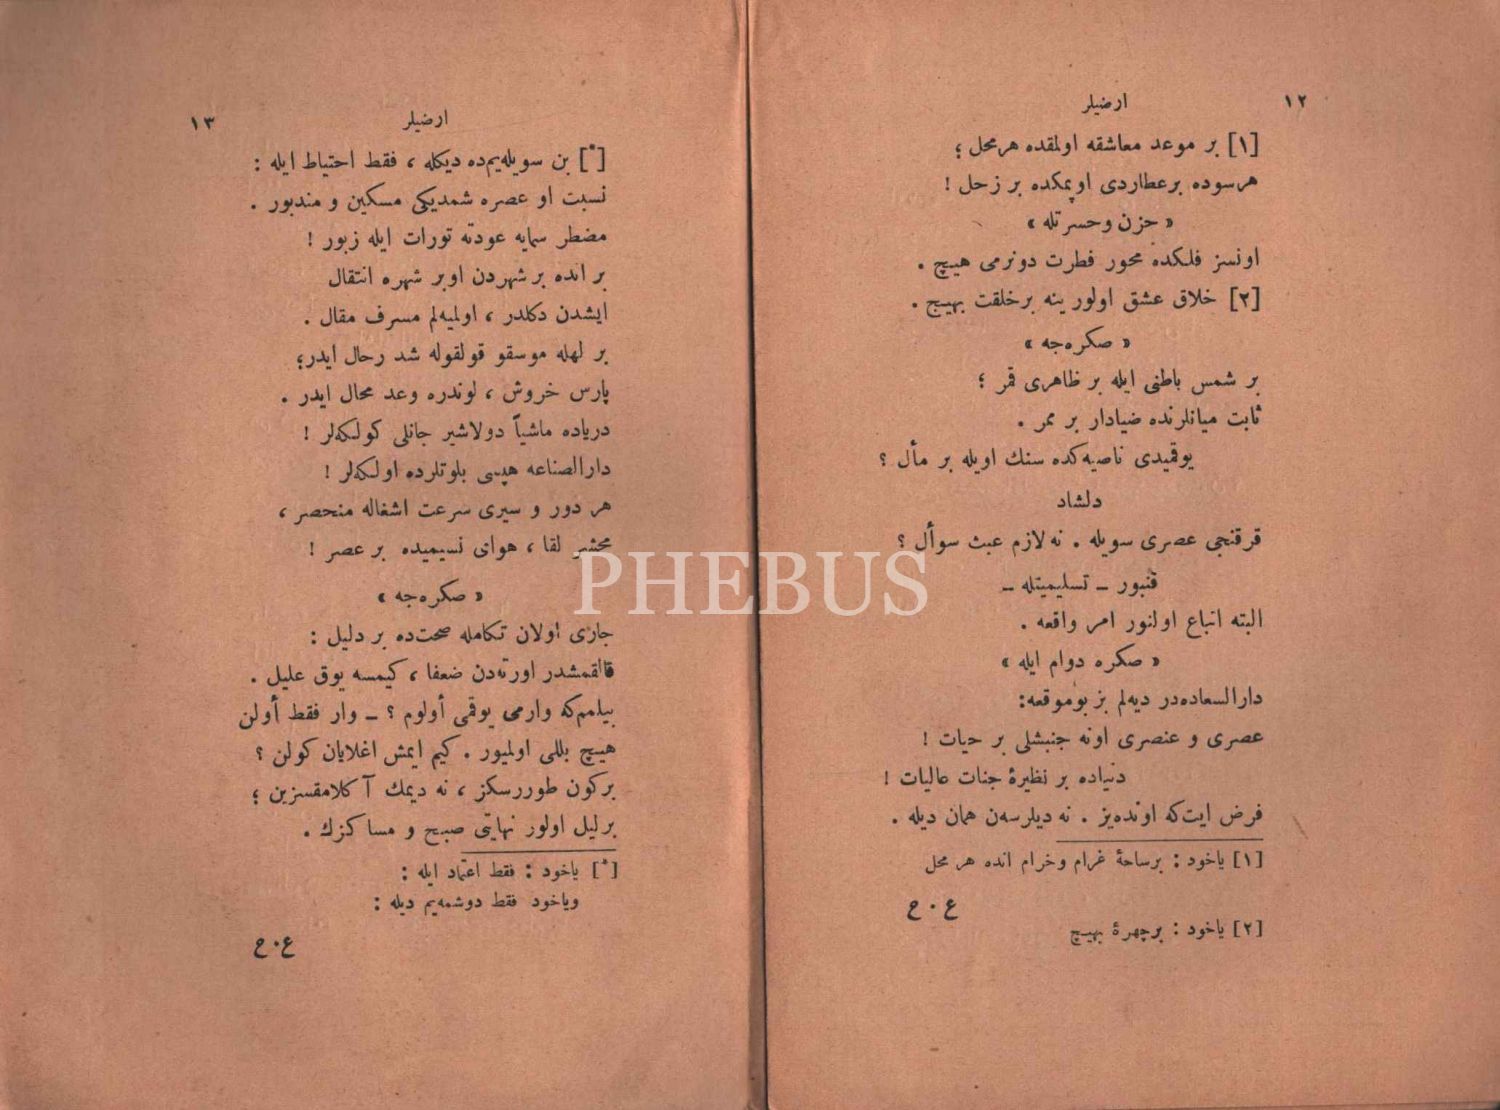 ١٢
ارضیلر
[١] بر موعد معاشقه اولمقده هر محل ؛
هرسوده برعطاردی اوپمكده بر زحل !
« حزن و حسرتله »
اونسز فلكده محور فطرت دونرمی هیچ .
[٢] خلاق عشق اولور ینه برخلقت بهیج .
« صكره‌جه »
بر شمس باطنی ایله بر ظاهری قمر ؛
ثابت میانلرنده ضیادار بر ممر .
یوقمیدی ناصیه‌كده سنك اویله بر مأل ؟
دلشاد
قرقنجی عصری سویله . نه لازم عبث سوأل ؟
قنبور ـ تسلیمیتله ـ
البته اتباع اولنور امر واقعه .
« صكره دوام ایله »
دارالسعاده‌در دیه‌لم بز بوموقعه:
عصری و عنصری اونه جنبشلی بر حیات !
دنیاده بر نظیرۀ جنات عالیات !
فرض ایت‌كه اونده‌یز . نه دیلرسه‌ن همان دیله .
[١] یاخود : برساحۀ غرام وخرام انده هر محل
ع . ح
[٢] یاخود : برچهرۀ بهیج
١٣
ارضیلر
[*] بن سویله‌یم‌ده دیكله ، فقط احتیاط ایله :
نسبت او عصره شمدیكی مسكین و مندبور .
مضطر سمایه عودته تورات ایله زبور !
بر آنده بر شهردن اوبر شهره انتقال
ایشدن دكلدر ، اولمیه‌لم مسرف مقال .
بر لهله موسقو قولقوله شد رحال ایدر؛
پارس خروش ، لوندره وعد محال ایدر .
دریاده ماشیاً دولاشیر جانلی كولكه‌لر !
دارالصناعه هپسی بلوتلرده اولكه‌لر !
هر دور و سیری سرعت اشغاله منحصر ،
محشر لقا ، هوای نسیمیده بر عصر !
« صكره‌جه »
جاری اولان تكامله صحت‌ده بر دلیل :
قالقمشدر اورته‌دن ضعفا ، كیمسه یوق علیل .
بیلمم‌كه وارمی یوقمی أولوم ؟ ـ وار فقط أولن
هیچ بللی اولمیور . كیم ایمش اغلایان كولن ؟
بركون طوررسكز ، نه دیمك آكلامقسزین ؛
برلیل اولور نهایتی صبح و مساكزك .
[*] یاخود : فقط اعتماد ایله :
ویاخود فقط دوشمه‌یم دیله :
ع . ح
PHEBUS